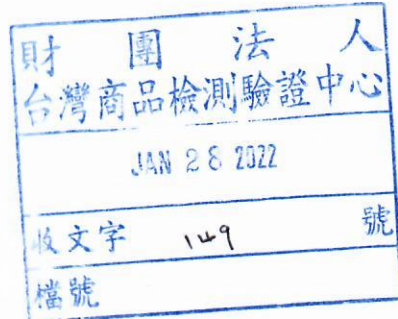 財團法人
台灣商品檢測驗證中心
JAN 28 2022
收文字 149 號
檔號